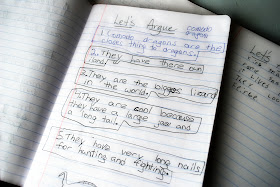 Let's Argue
comodo
dragons
Comodo dragons are the
closes thing to dragons.
1. They have there own
island
2. They are the biggest lizard
in the world.
4. They are cool because
they have a large jaw and
a long tail.
3. They have very long nails
for hunting and fighting.